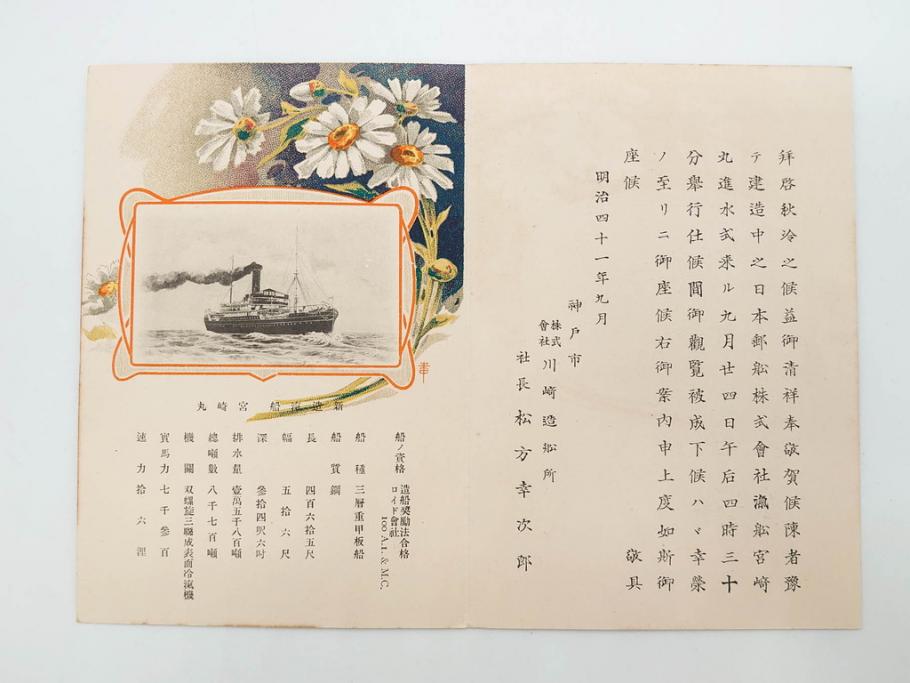 拜啓秋冷之候益御清祥奉敬賀候陳者豫
テ建造中之日本郵舩株式會社滊舩宮崎
丸進水式来ル九月廿四日午后四時三十
分擧行仕候間御觀覽被成下候ハヾ幸榮
ノ至リニ御座候右御案內申上度如斯御
座候 敬具
明治四十一年九月
神戸市
株式會社川崎造舩所
社長松方幸次郎
新造滊船宮崎丸
船ノ資格 造船奬勵法合格
ロイド會社
100 A.I. & M.C.
船種 三層重甲板船
船質 鋼
長 四百六拾五尺
幅 五拾六尺
深 參拾四呎六吋
排水量 壹萬五千八百噸
總噸數 八千七百噸
機關 双螺旋三聯成表面冷滊機
實馬力 七千參百
速力 拾六浬